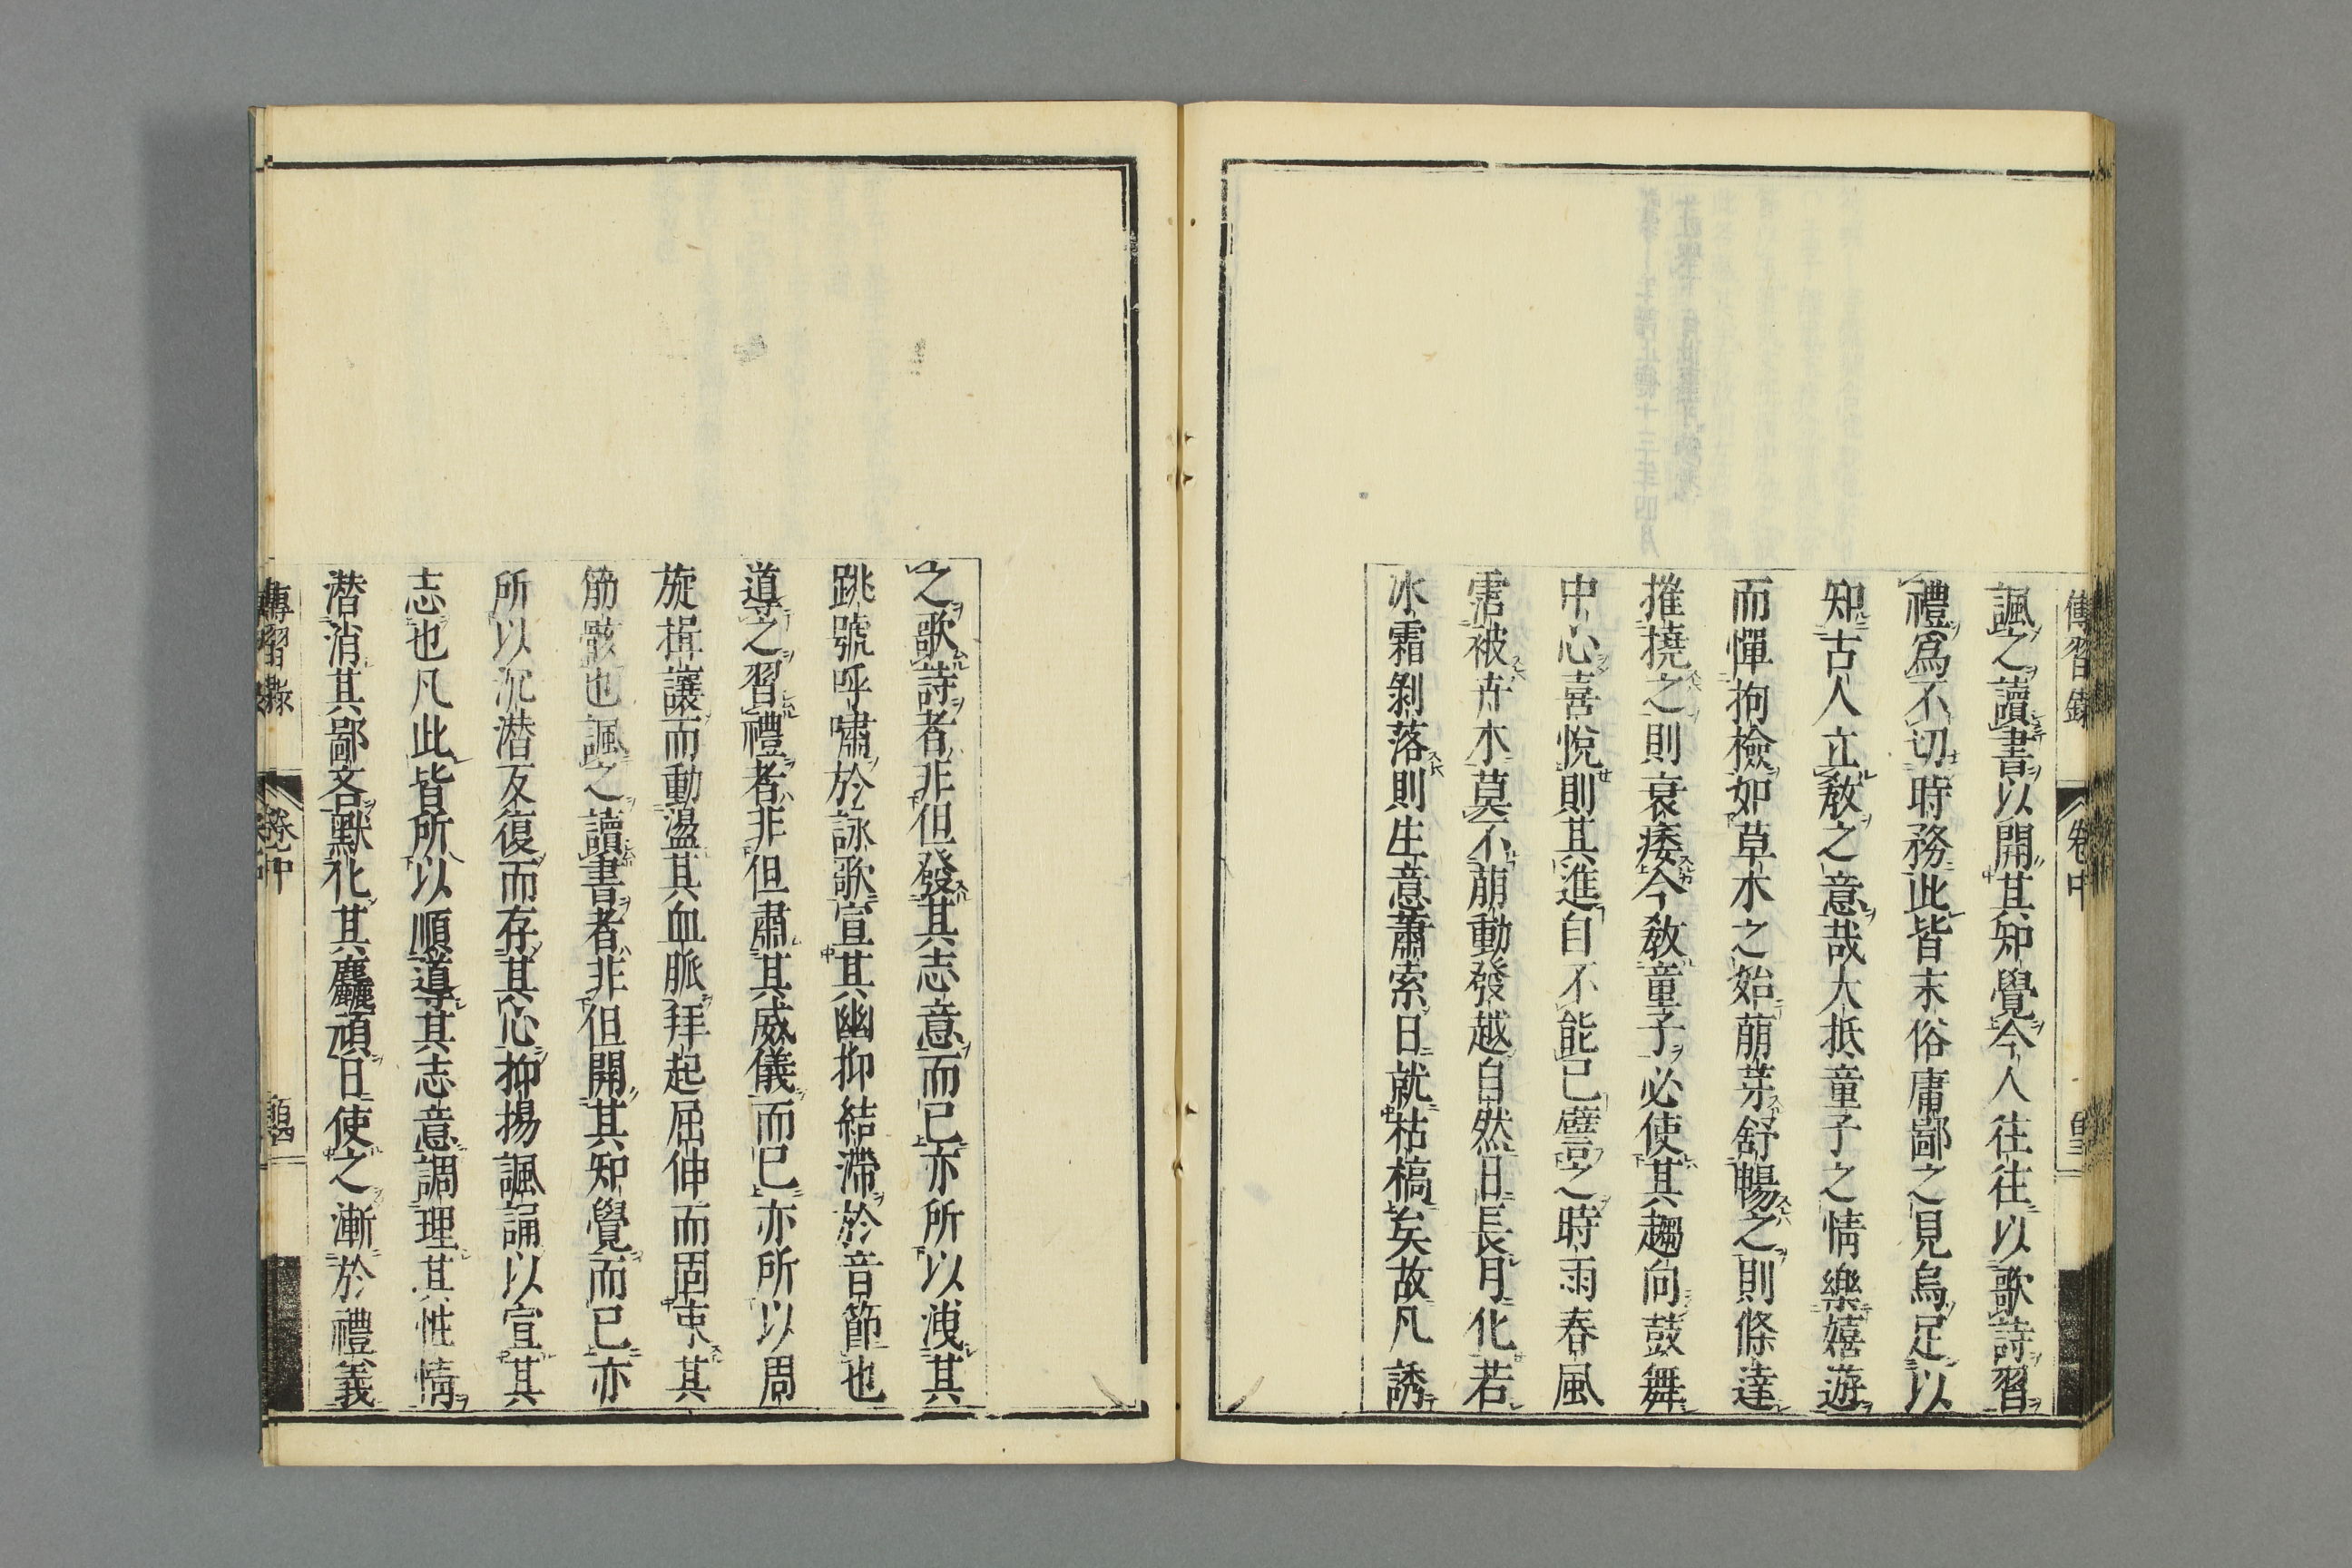 傳習錄 卷中
諷之讀書以開其知覺今人往往以歌詩習
禮爲不切時務此皆末俗庸鄙之見烏足以
知古人立敎之意哉大抵童子之情樂嬉遊
而憚拘檢如草木之始萠芽舒暢之則條達
摧撓之則衰痿今敎童子必使其趨向鼓舞
中心喜悅則其進自不能已譬之時雨春風
霑被卉木莫不萠動發越自然日長月化若
冰霜剝落則生意蕭索日就枯槁矣故凡誘
之歌詩者非但發其志意而已亦所以洩其
跳號呼嘯於詠歌宣其幽抑結滯於音節也
導之習禮者非但肅其威儀而已亦所以周
旋揖讓而動盪其血脈拜起屈伸而固束其
筋骸也諷之讀書者非但開其知覺而已亦
所以沉潜反復而存其心抑揚諷誦以宣其
志也凡此皆所以順導其志意調理其性情
潜消其鄙吝默化其麤頑日使之漸於禮義
傳習錄 卷中